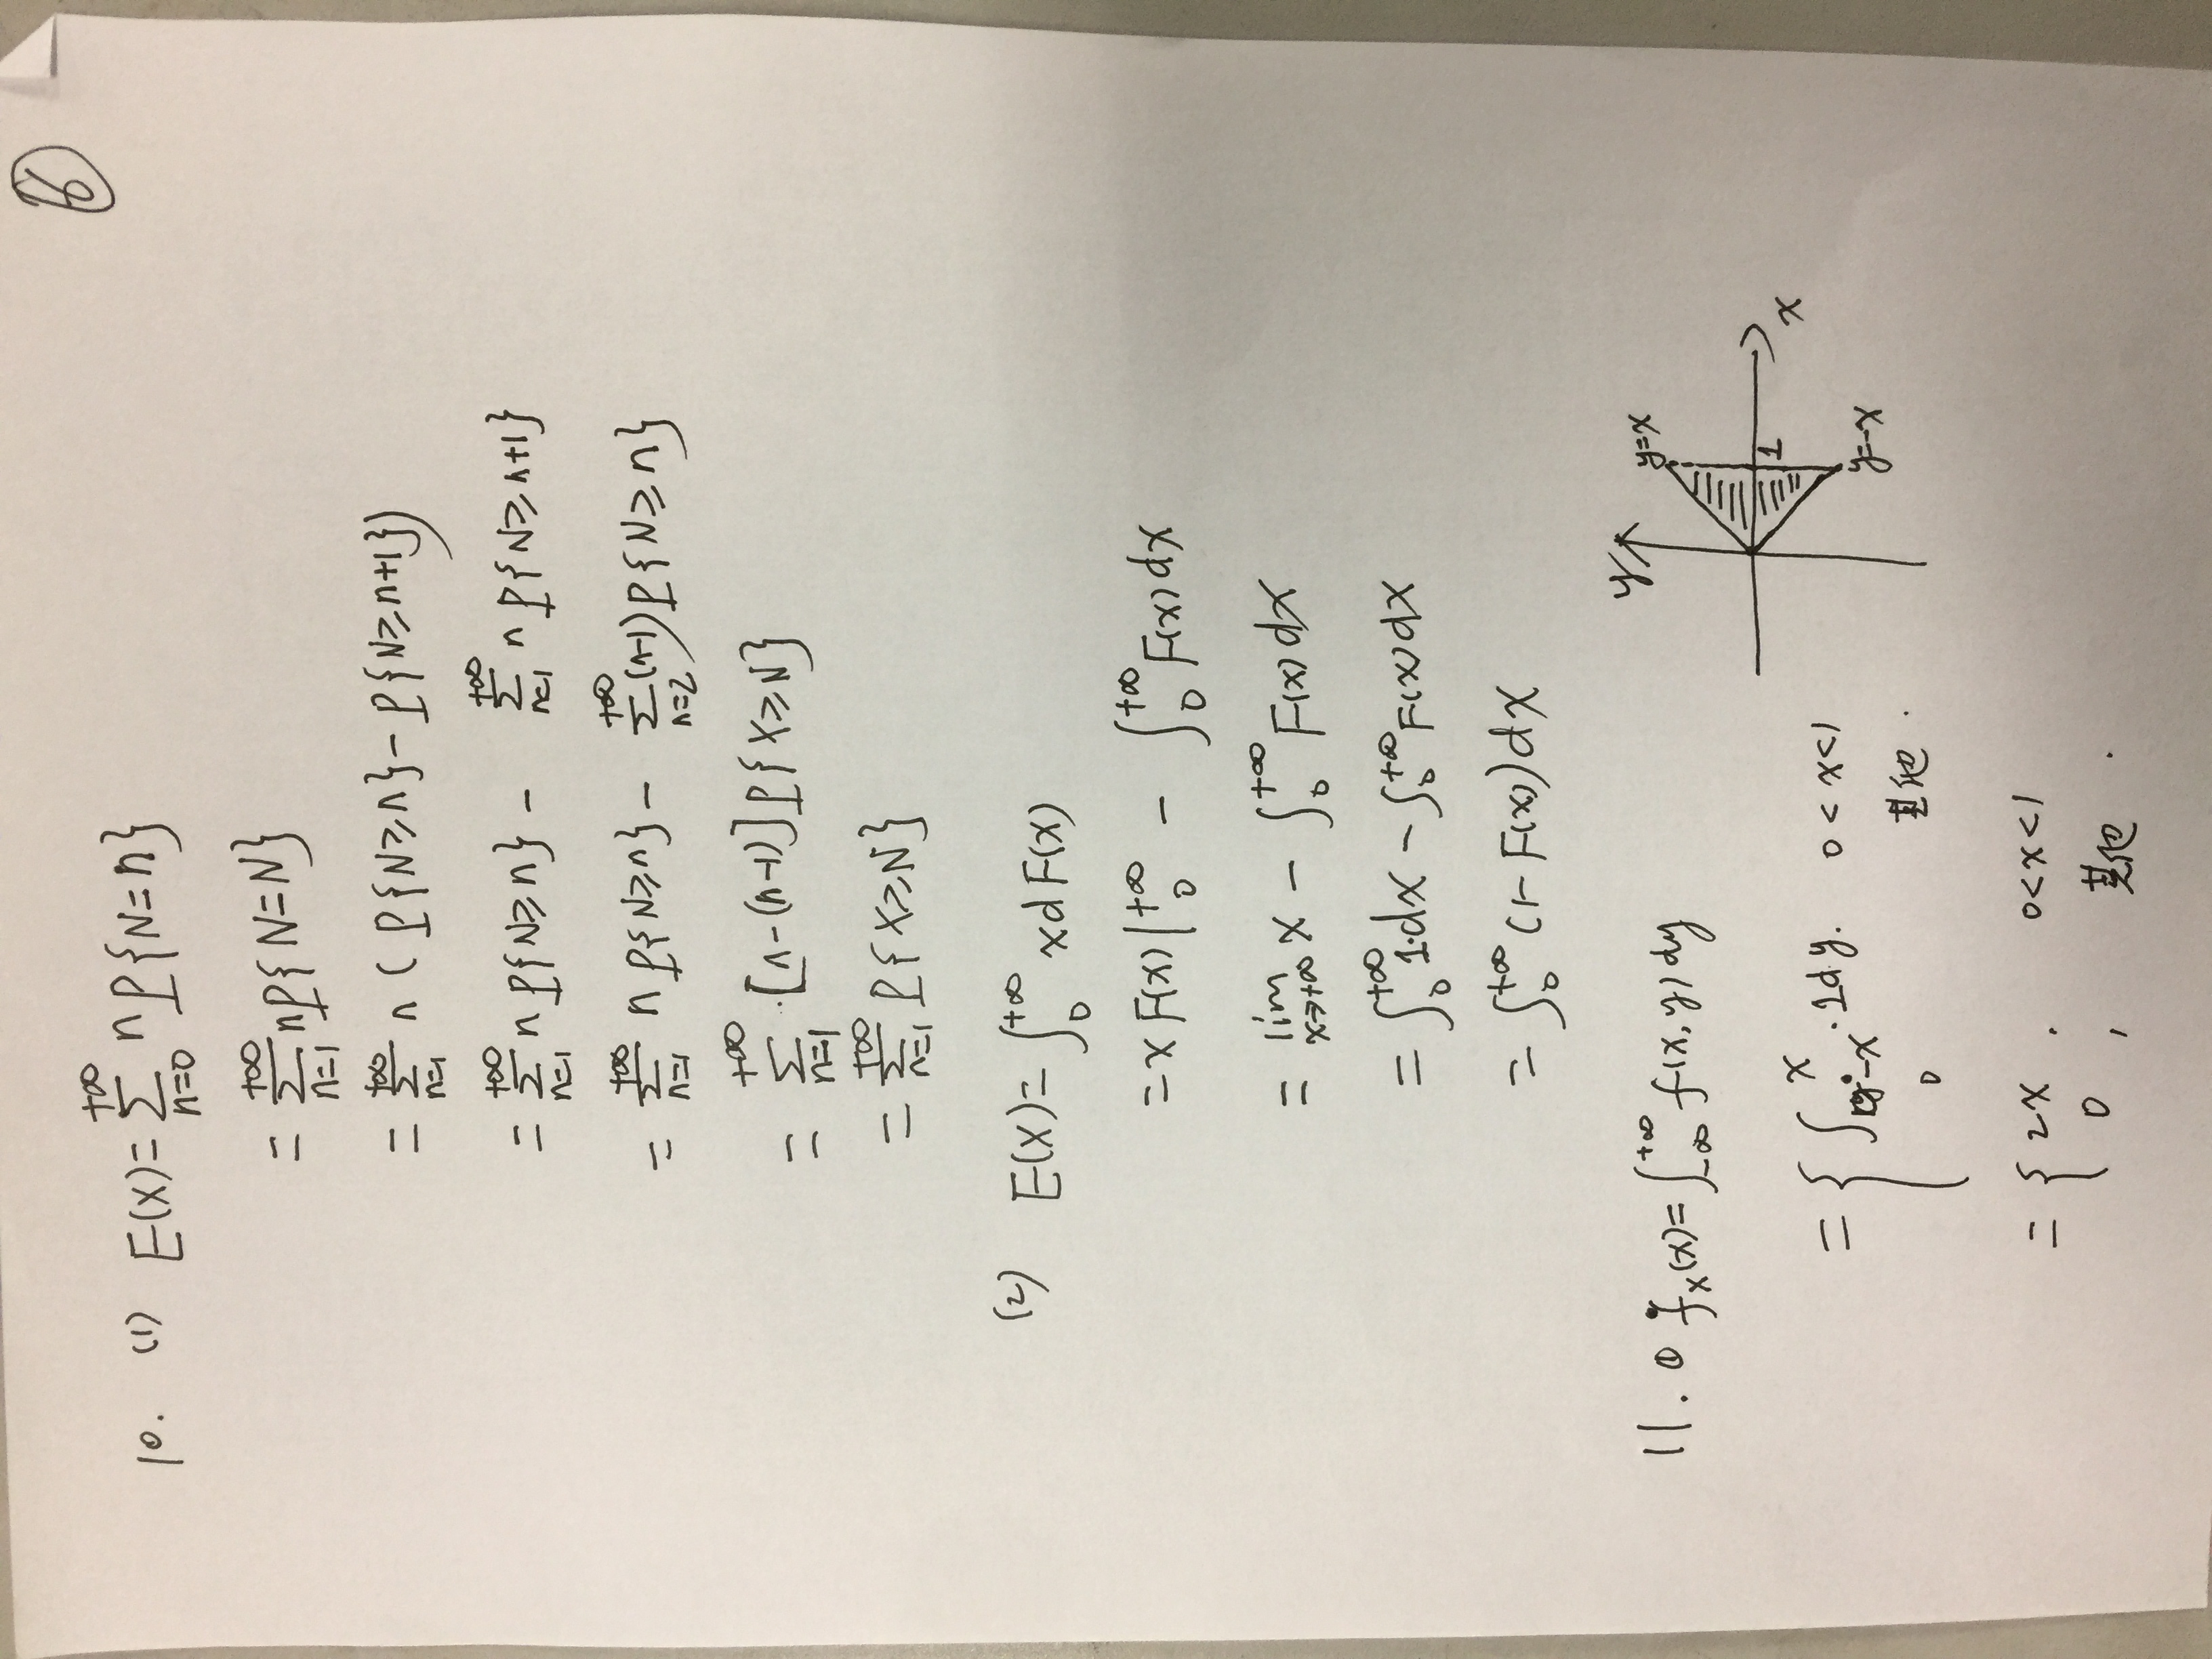 ⑥
10. (1) E(X)=∑_{n=0}^{+∞} nP{N=n}
=∑_{n=1}^{+∞} nP{N=N}
=∑_{n=1}^{+∞} n(P{N≥n}-P{N≥n+1})
=∑_{n=1}^{+∞} nP{N≥n}-∑_{n=1}^{+∞} nP{N≥n+1}
=∑_{n=1}^{+∞} nP{N≥n}-∑_{n=2}^{+∞}(n-1)P{N≥n}
=∑_{n=1}^{+∞}·[n-(n-1)]P{X≥N}
=∑_{n=1}^{+∞} P{X≥N}
(2) E(X)=∫_0^{+∞} xdF(x)
=xF(x)|_0^{+∞} - ∫_0^{+∞} F(x)dx
=lim_{x→+∞} x - ∫_0^{+∞} F(x)dx
=∫_0^{+∞} 1·dx - ∫_0^{+∞} F(x)dx
=∫_0^{+∞} (1-F(x))dx
11. ① f_X(x)=∫_{-∞}^{+∞} f(x,y)dy
={ ∫_{-x}^{x}·1dy. 0<x<1
0 其他.
={ 2x, 0<x<1
0, 其他.
y
y=x
1
x
y=-x